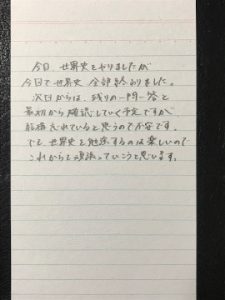 今日、世界史をやりましたが
今日で世界史 全部終わりました。
次回からは、残りの一問一答と
最初から確認していく予定ですが、
結構忘れていると思うので不安です。
でも、世界史を勉強するのは楽しいので
これからも頑張っていこうと思います。